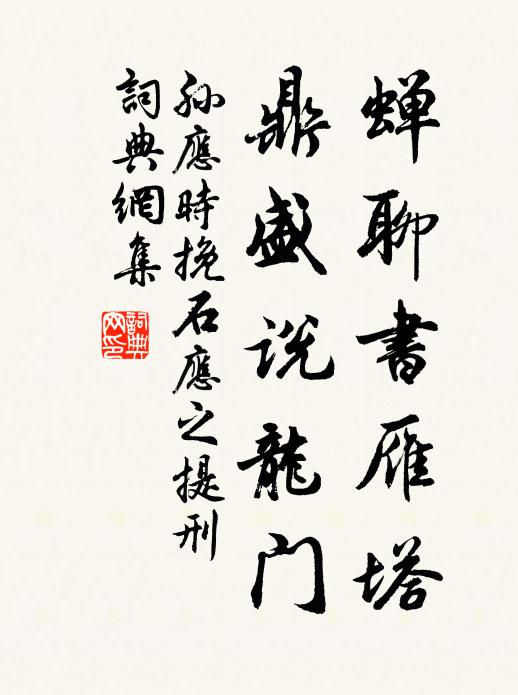 蝉聊書雁塔
鼎盛说龍门
孙應時挽石應之提刑
詞典網集
詞典
网印